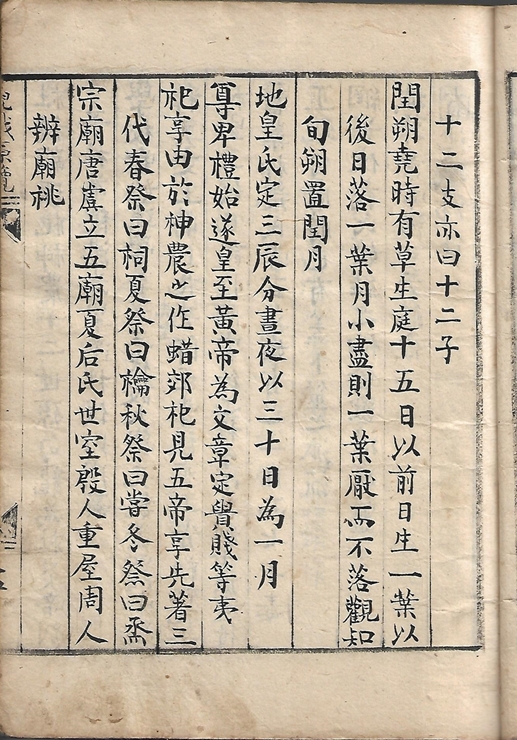 十二支亦曰十二子
閏朔堯時有草生庭十五日以前日生一葉以
後日落一葉月小盡則一葉厭而不落觀知
旬朔置閏月
地皇氏定三辰分晝夜以三十日為一月
尊卑禮始遂皇至黃帝為文章定貴賤等夷
祀享由於神農之作蜡郊祀見五帝享先著三
代春祭曰祠夏祭曰禴秋祭曰嘗冬祭曰烝
宗廟唐虞立五廟夏后氏世室殷人重屋周人
辨廟祧